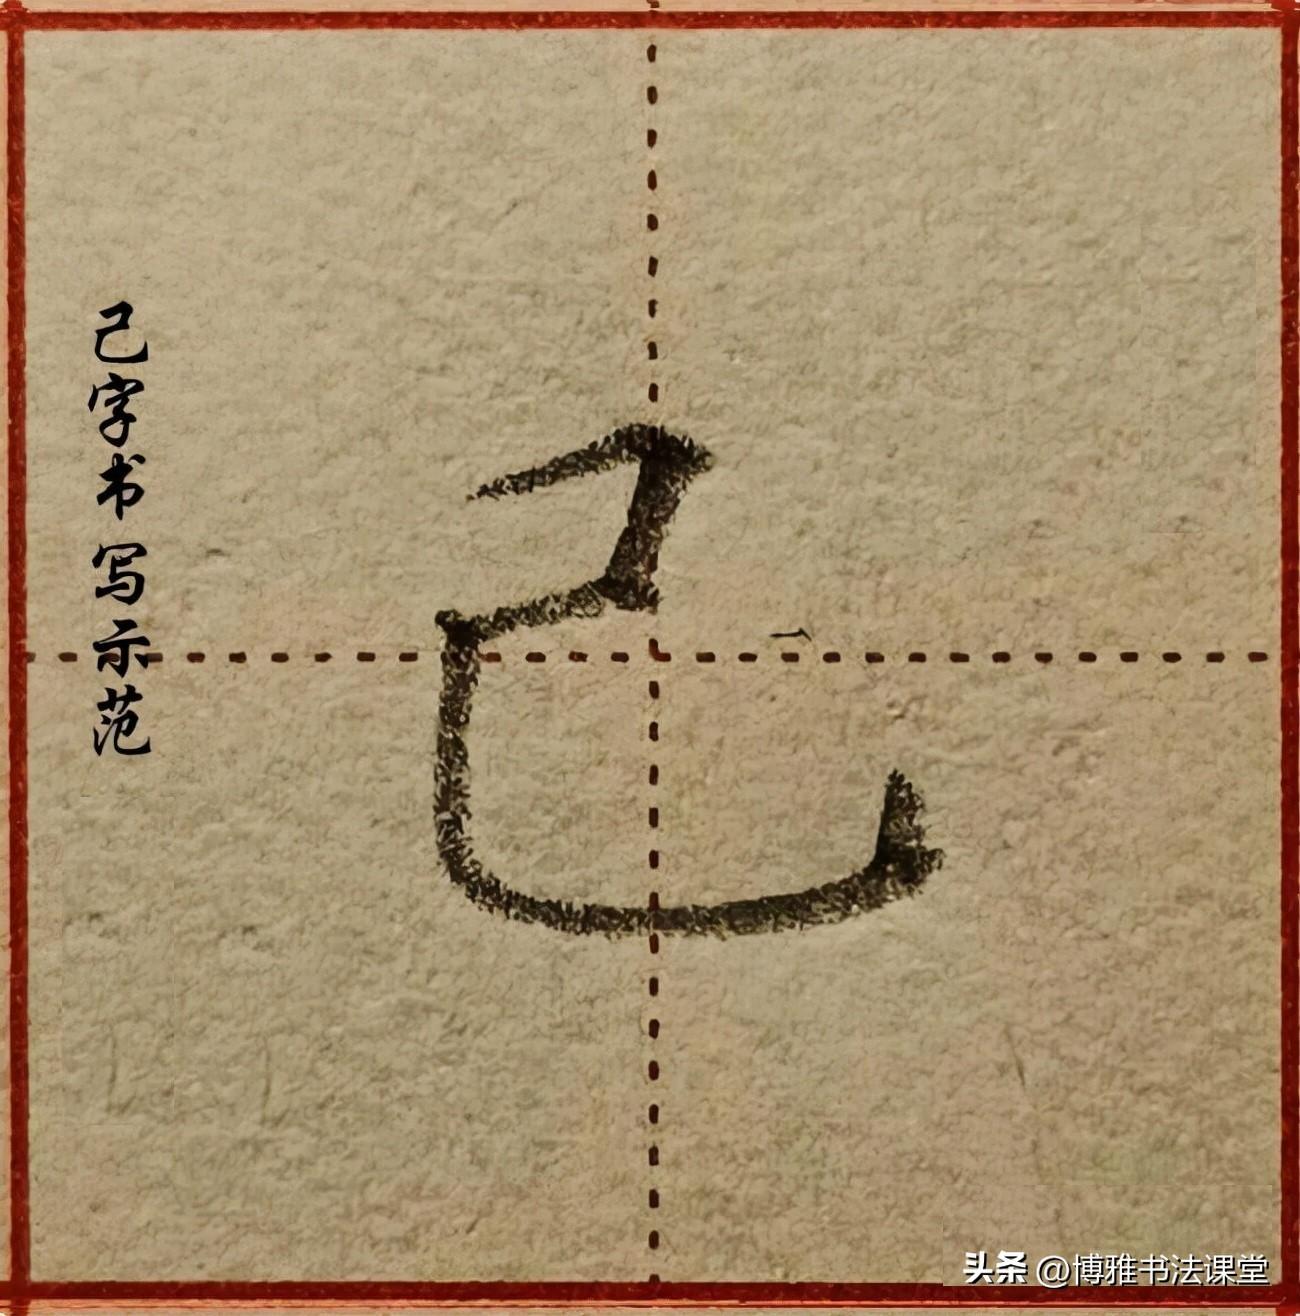 己字书写示范
己
头条 @博雅书法课堂